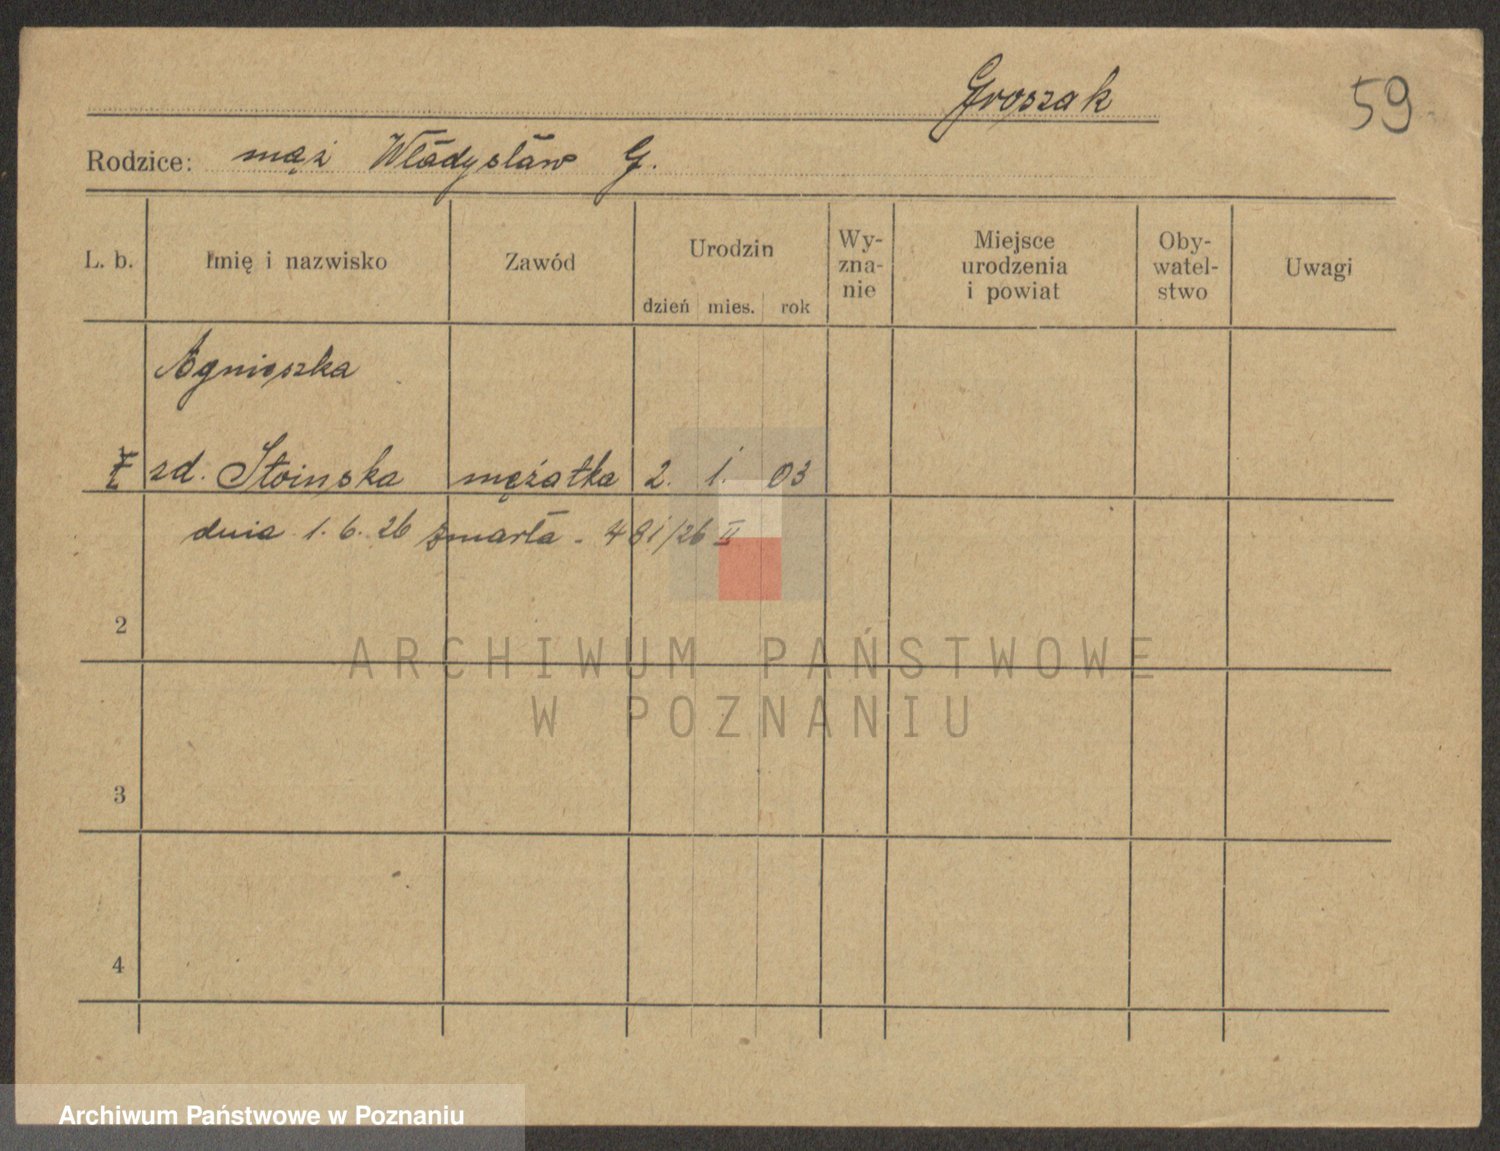 Groszak
59
Rodzice: mąż Władysław G.
L. b. Imię i nazwisko Zawód Urodzin dzień mies. rok Wy-zna-nie Miejsce urodzenia i powiat Oby-watel-stwo Uwagi
Agnieszka
zd. Stoinska mężatka 2. 1. 03
dnia 1. 6. 26 zmarła - 481/26 II
2
ARCHIWUM PAŃSTWOWE
W POZNANIU
3
4
Archiwum Państwowe w Poznaniu